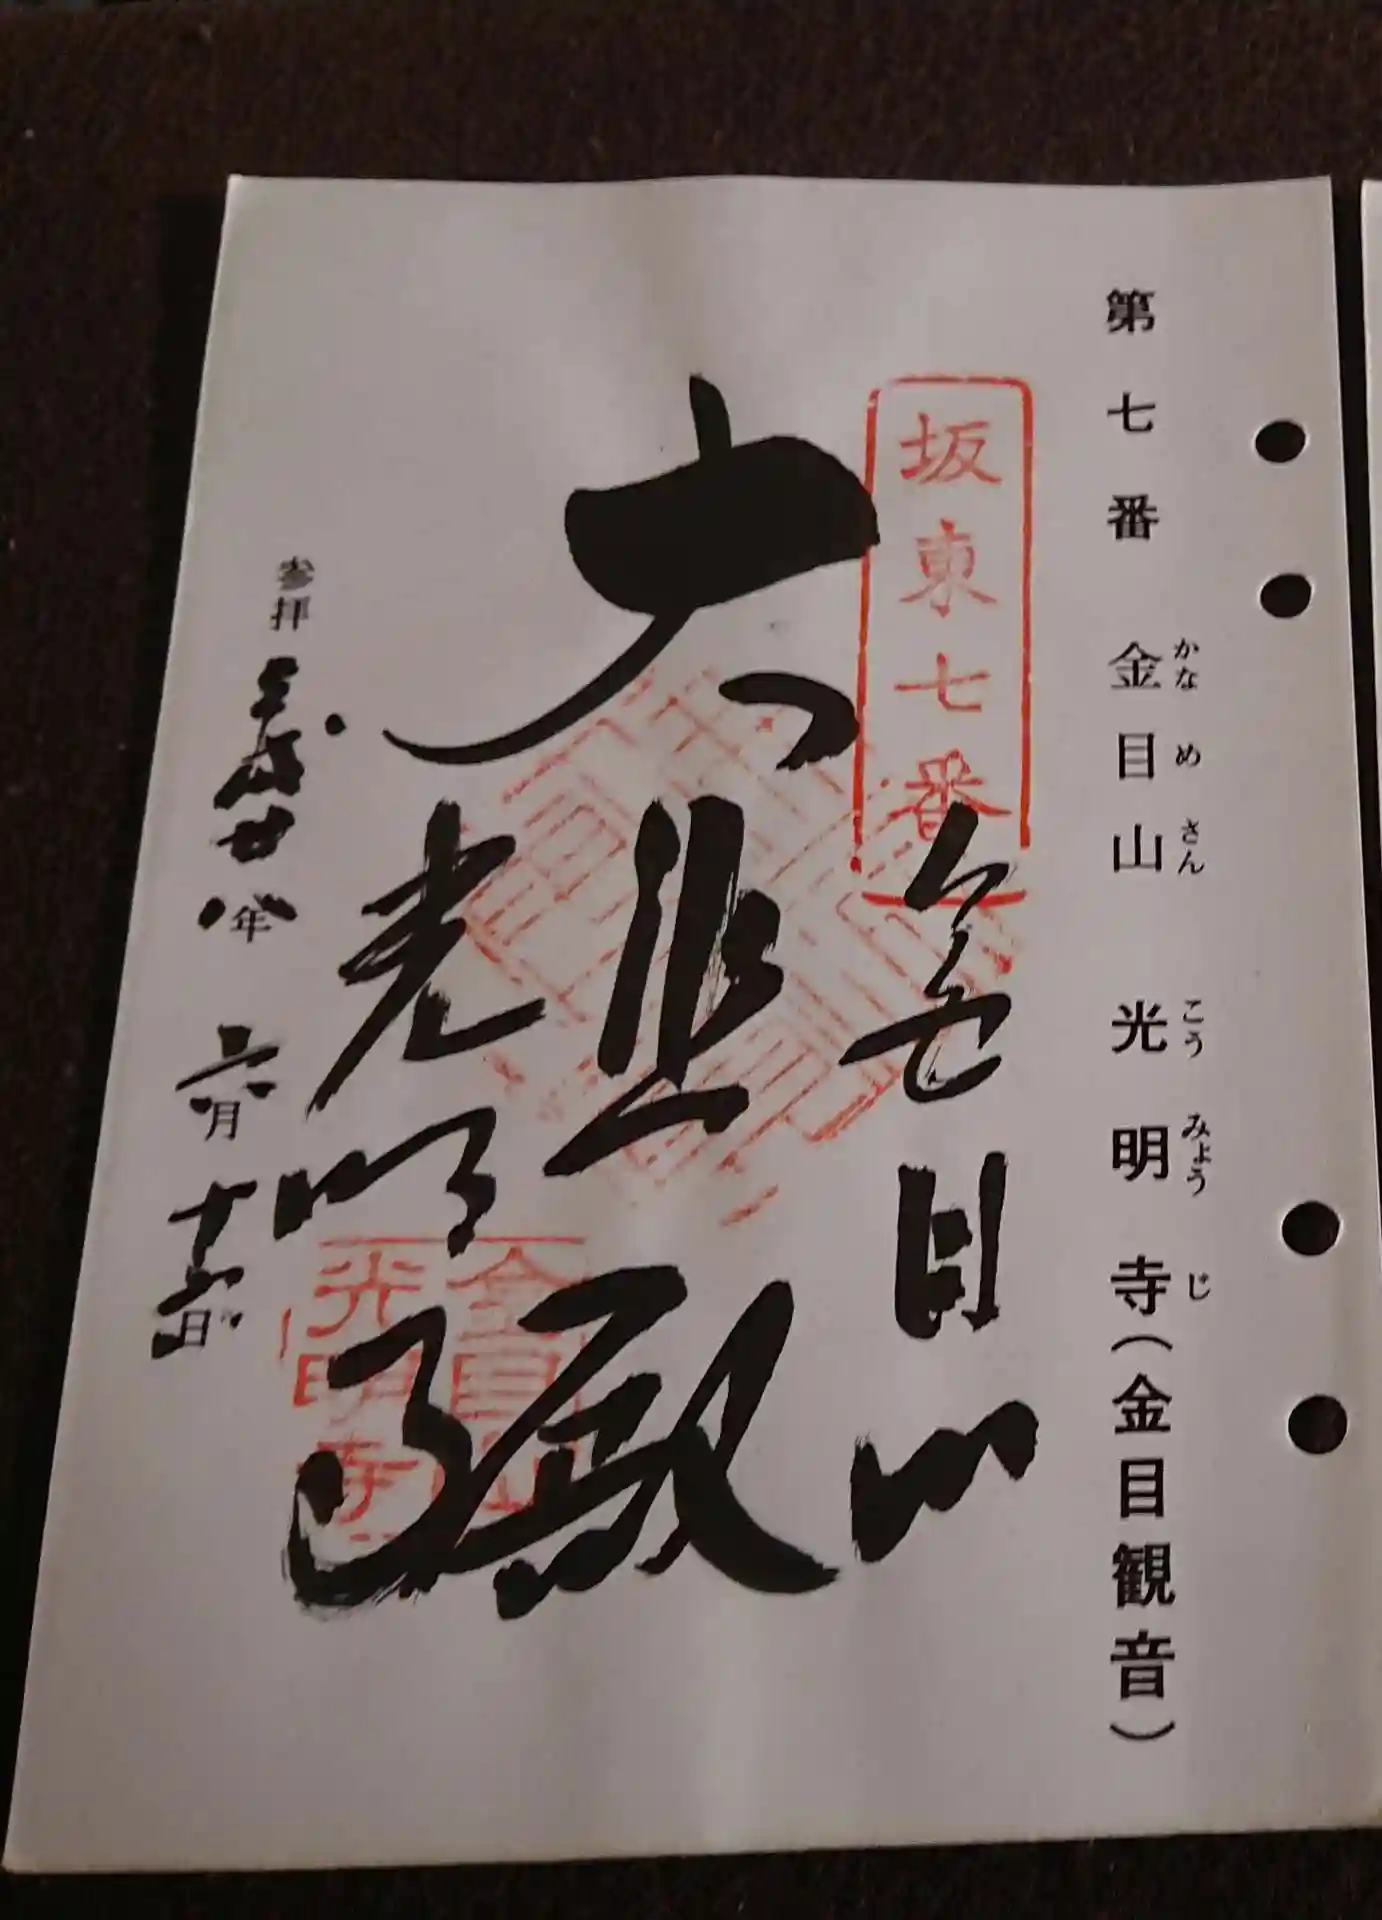 かなめさん こうみょうじ
第七番 金目山 光明寺(金目観音)
坂東七番
金目山
大悲殿
光明寺
金目山
光明寺
参拝 平成廿八年 六月 十六日